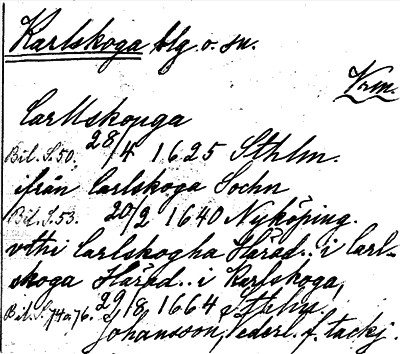 Karlskoga blg o. sn.
Vrm.
Carllskouga
Bil. S. 50. 28/4 1625 Sthlm.
ifrån Carlskoga Sochn
Bil. S. 53. 20/2 1640 Nyköping.
vthi Carlskogha Härad.. i Carl-
skoga Härad.. i Karlskoga,
Bil. S. 74 o 76. 29/8 1664 Sthlm.
Johansson, Nederl. f. tackj.